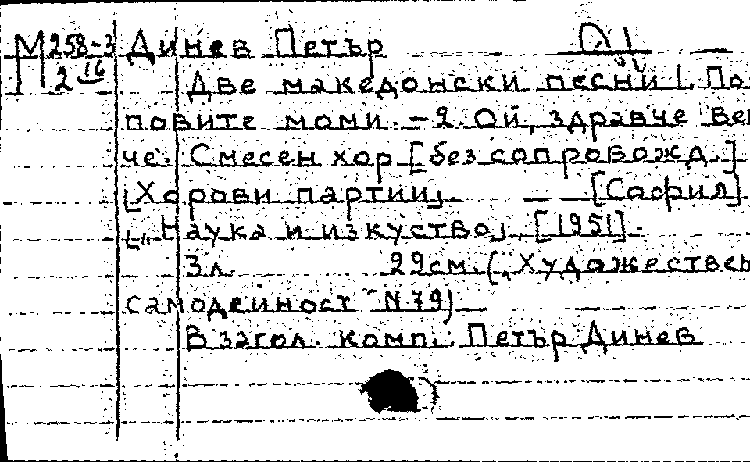 М 258-3 Динев Петър
2 16 Две македонски песни 1. По
повите моми. – 2. Ой, здравче вен
че. Смесен хор [без сопровожд.]
[Хорови партии]. [София]
[„Наука и изкуство], [1951].
3 л. 29 см. („Художествен
самодейност" N 79)
В загол. комп.: Петър Динев